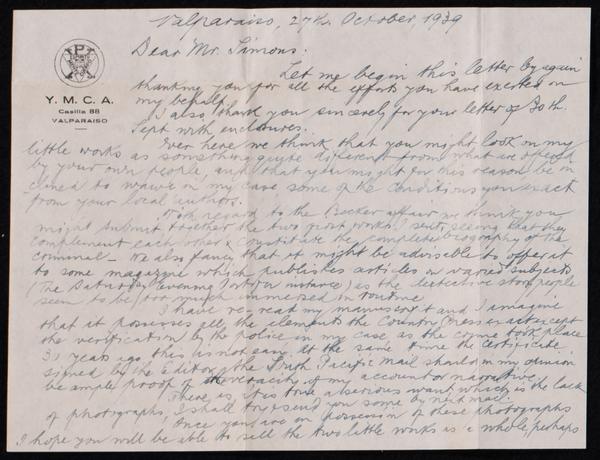 Valparaiso, 27th October, 1939
Y. M. C. A.
Casilla 88
VALPARAISO
Dear Mr. Simons:
Let me begin this letter by again
thanking you for all the efforts you have exerted on
my behalf.
I also thank you sincerely for your letter of 30th.
Sept with enclosures.
Over here we think that you might look on my
little works as something quite different from what are offered
by your own people, and that you might for this reason be in
clined to waive in my case some of the conditions you exact
from your local authors.
With regard to the Becker affair we think you
might submit together the two first works I sent seeing that they
complement each other & constitute the complete biography of the
criminal – We also fancy that it might be advisable to offer it
to some magazine which publishes articles on varied subjects
(The Saturday Evening Post for instance) as the detective story people
seem to be too much immersed in routine.
I have re-read my manuscript and I imagine
that it possesses all the elements the Country Press exacts except
the verification by the police in my case as the crime took place
31 years ago this is not easy. At the same time the certificate
signed by the Editor of the South Pacific Mail should in my opinion
be ample proof of the veracity of my account or narrative.
There is, it is true a serious want, which is the lack
of photographs, I shall try & send you some by next mail.
Once you are in possession of these photographs
I hope you will be able to sell the two little works as a whole, perhaps